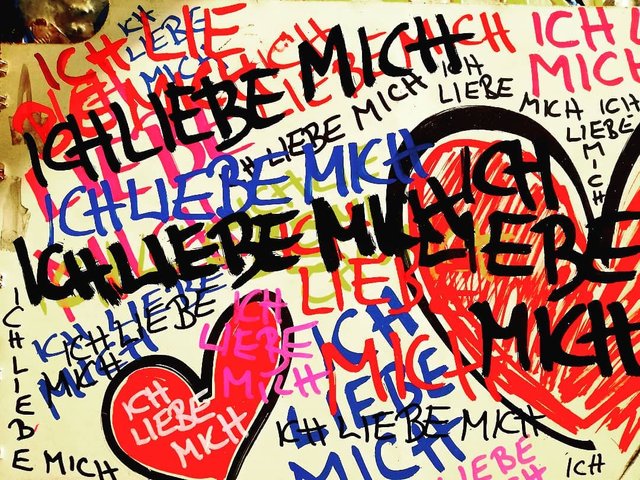 ICH LIE
ICH
LIEBE
MICH
ICH
LIEBE MICH
ICH LIEBE MICH
ICH
LIEBE
ICH
MICH
LIEBE MICH
MICH
ICH
LIEBE
MICH
ICH LIEBE MICH
ICH LIEBE MICH
ICH
LIEBE
MICH
LIEBE
ICH LIEBE
ICH LIEBE
MICH
ICH
LIEBE
MICH
ICH
LIEBE
MICH
ICH
LIEBE
MICH
MICH
ICH LIEBE MICH
ICH LIEBE
MICH
LIEBE
ICH